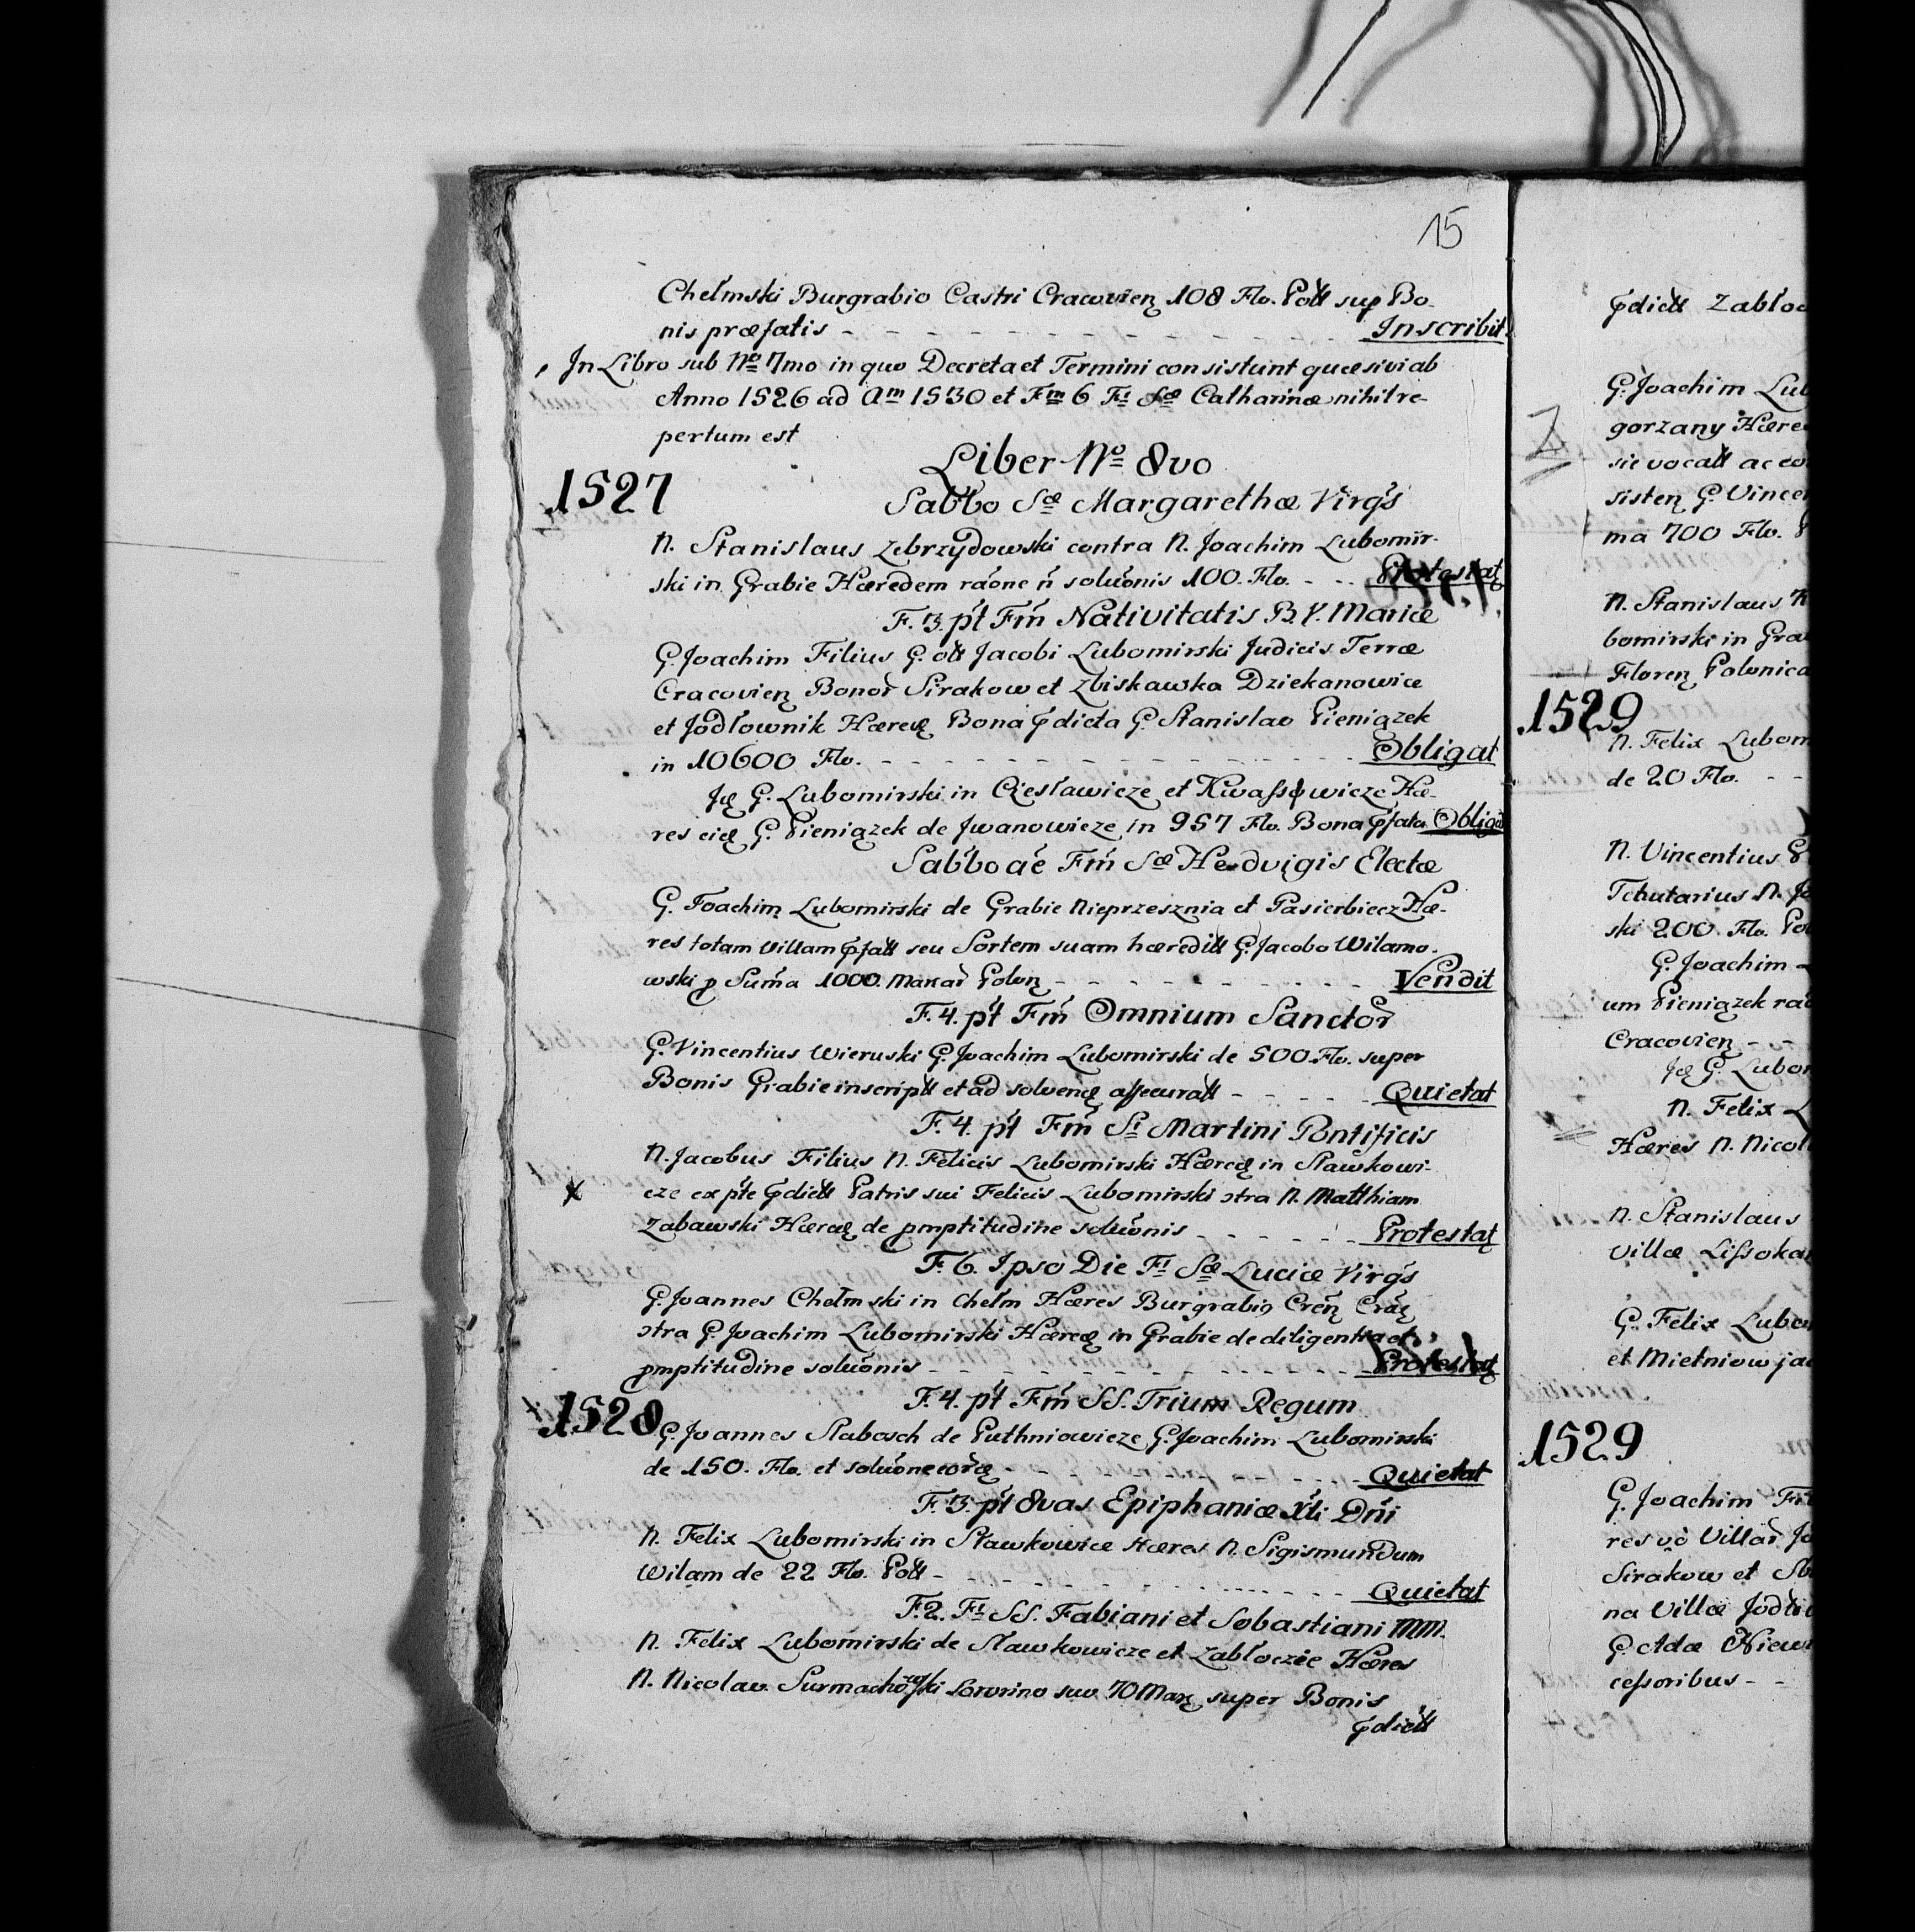 15
Chełmski Burgrabio Castri Cracovien 108 Flo. Poll sup Bo-
nis præfatis - - - Inscribit
In Libro sub No 7mo in quo Decreta et Termini consistunt quæsivi ab
Anno 1526 ad Am 1530 et Fm 6 Fi Sæ Catharinæ nihil re-
pertum est
Liber No 8vo
1527
Sabbo Sæ Margarethæ Virgs
N. Stanislaus Zebrzydowski contra N. Joachim Lubomir-
ski in Grabie Hæredem raone ñ soluonis 100. Flo. - - Protestat
F. 3. pt Fm Nativitatis B. V. Mariæ
G. Joachim Filius G. oll Jacobi Lubomirski Judicis Terræ
Cracovien Bonor Sirakow et Zbiskawka Dziekanowice
et Jodłownik Hæred Bona pdicta G. Stanislao Pieniązek
in 10600 Flo. - - - Obligat
Jd G. Lubomirski in Czesławicze et Kwassowicze Hæ-
res eid G. Pieniązek de Jwanowicze in 957 Flo. Bona pfata Obligat
Sabbo ae Fm Sæ Hedvigis Electæ
G. Joachim Lubomirski de Grabie Nieprzesznia et Pasierbiecz Hæ-
res totam Villam pfatt seu Sortem suam hæreditt G. Jacobo Wilamo-
wski p Suma 1000. Marcar Polon - - - Vendit
F. 4. pt Fm Omnium Sanctor
G. Vincentius Wieruski G. Joachim Lubomirski de 500 Flo. super
Bonis Grabie inscriptt et ad solvend assecuratt - - - Quietat
F. 4. pt Fm Si Martini Pontificis
N. Jacobus Filius N. Felicis Lubomirski Hæred in Sławkowi-
cze ex pte pdictt Patris sui Felicis Lubomirski ɔtra N. Matthiam
Zabawski Hæred de pmptitudine soluonis - - - Protestat
F. 6. Ipso Die Fi Sæ Luciæ Virgs
G. Joannes Chełmski in Chełm Hæres Burgrabio Cren Crac
ɔtra G. Joachim Lubomirski Hæred in Grabie de diligentia et
pmptitudine soluonis - - - Protestat
F. 4. pt Fm SS. Trium Regum
1528
G. Joannes Slabosch de Puthniowicze G. Joachim Lubomirski
de 150. Flo. et soluone eord - - - Quietat
F. 3. pt 8vas Epiphaniæ Xti Dni
N. Felix Lubomirski in Sławkowice Hæres N. Sigismundum
Wilam de 22 Flo. Poll - - - Quietat
F. 2. Fi SS. Fabiani et Sobastiani MM.
N. Felix Lubomirski de Sławkowicze et Zabłoczie Hæres
N. Nicolao Surmachowski Sororino suo 70 Marc super Bonis
pdictt
pdictt Zabłoc
G. Joachim Lub
gorzany Hære
sic vocatt ac
sisten G. Vincen
ma 700 Flo.
N. Stanislaus
bomirski in Gra
Floren Polonica
1529
N. Felix Lubom
de 20 Flo. - -
N. Vincentius
Tenutarius N. Jo
ski 200 Flo. Pol
G. Joachim
um Pieniązek rao
Cracovien - -
Jd G. Lubom
N. Felix L
Hæres N. Nicol
N. Stanislaus
Villæ Lissoka
G. Felix Lubo
et Mietniow
1529
G. Joachim Fi
res
Sirakow et
na Villæ Jodło
G. Adæ Niew
cessoribus - -